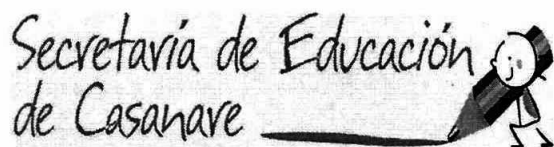 Secretaría de Educación
de Casanare